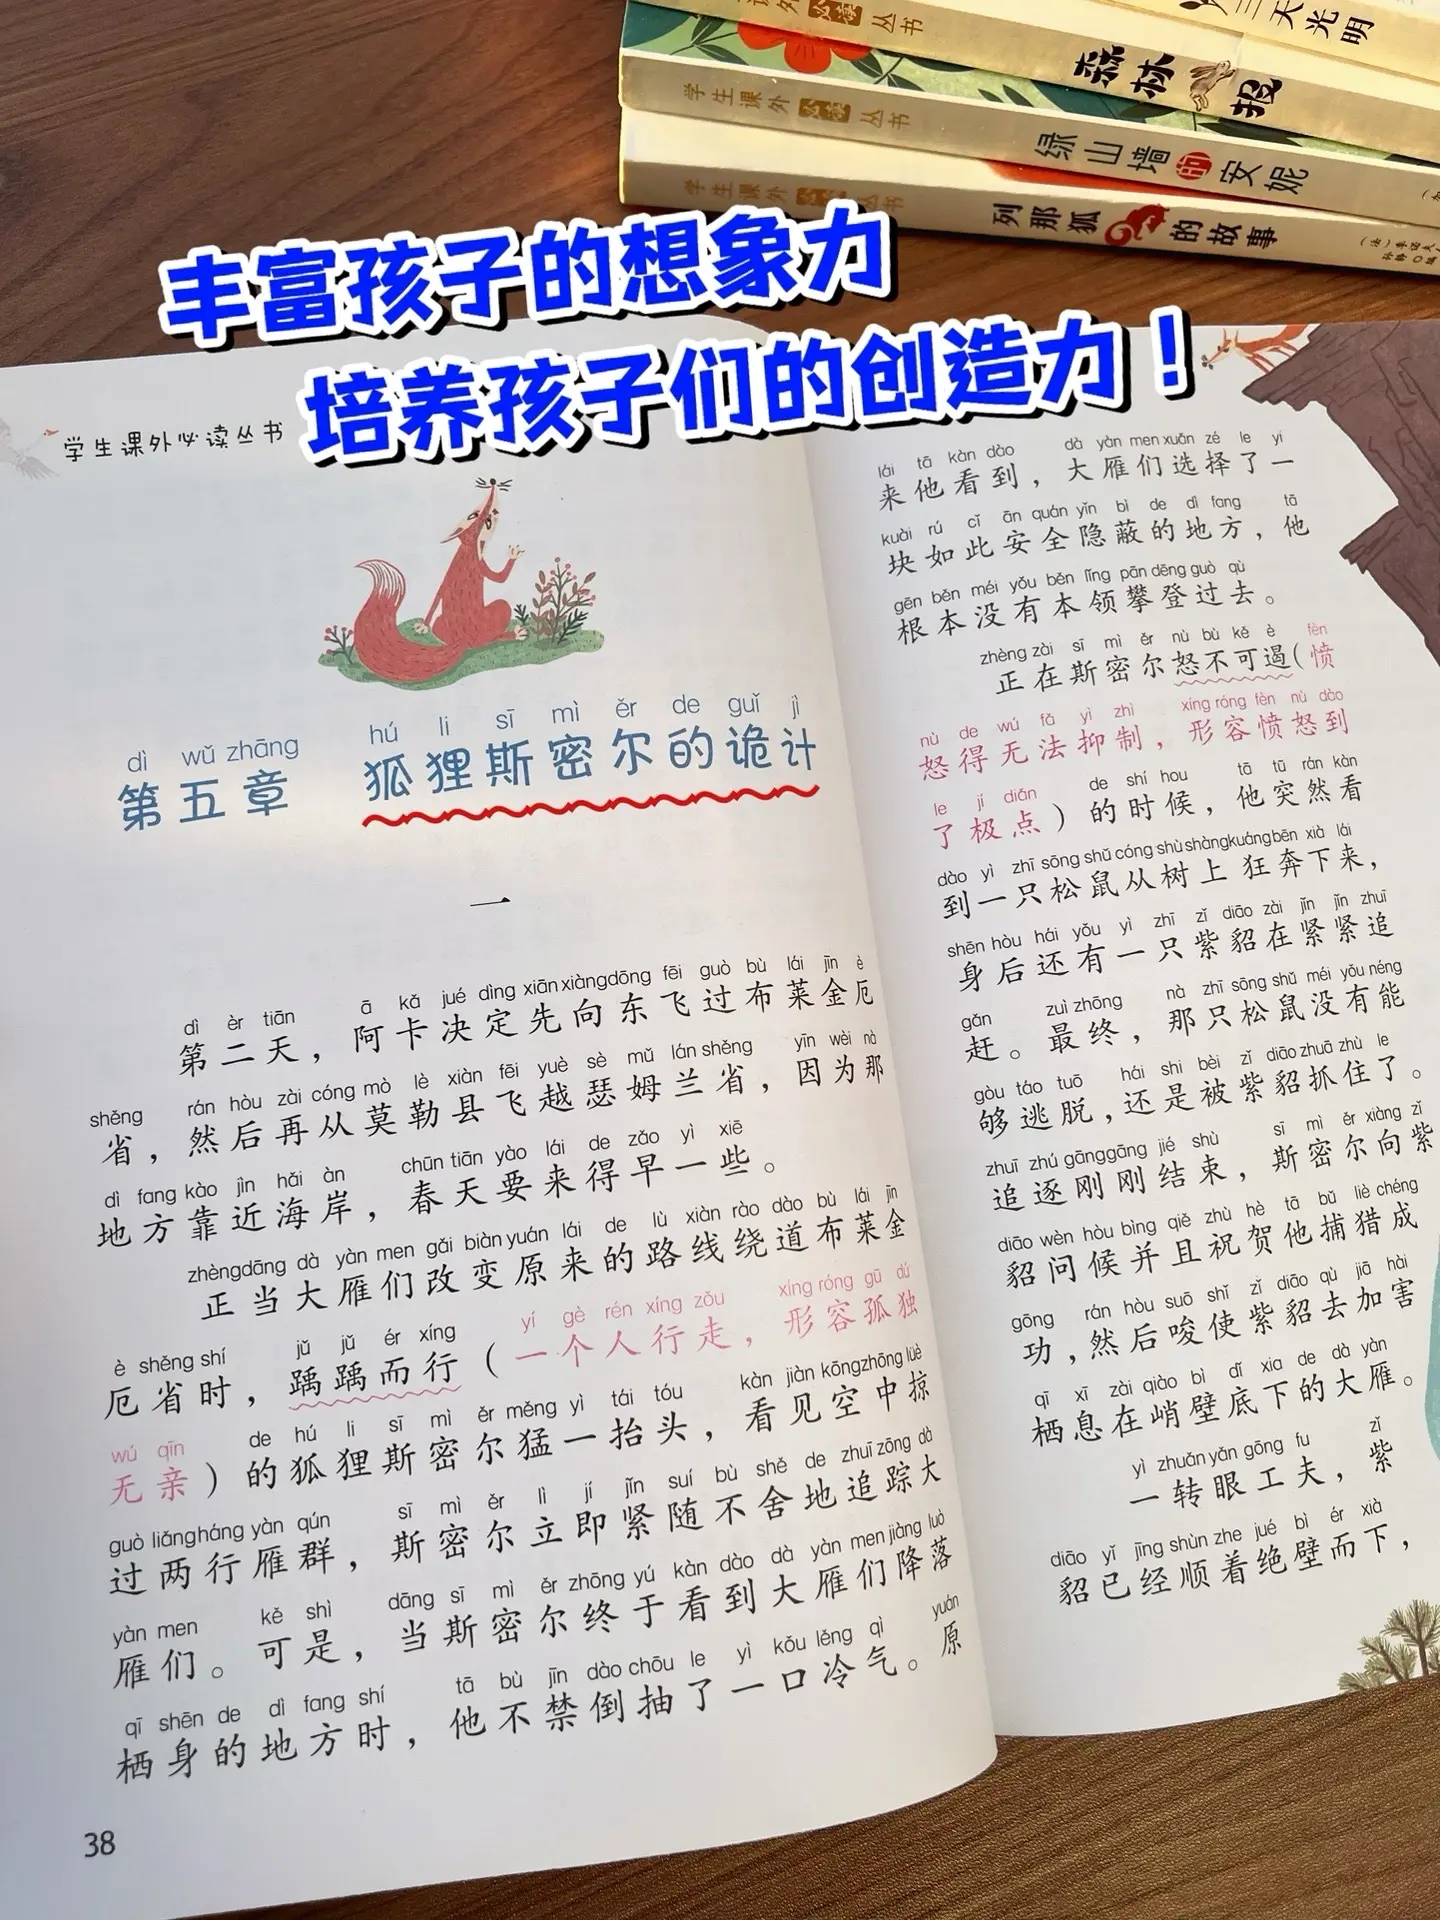 三天光明
课外必读丛书
森林报
学生课外必读丛书
绿山墙的安妮
学生课外必读丛书
列那狐的故事
丰富孩子的想象力
培养孩子们的创造力！
学生课外必读丛书
dì wǔ zhāng hú li sī mì ěr de guǐ jì
第五章 狐狸斯密尔的诡计
一
dì èr tiān ā kǎ jué dìng xiān xiàng dōng fēi guò bù lái jīn è
第二天，阿卡决定先向东飞过布莱金厄
shěng rán hòu zài cóng mò lè xiàn fēi yuè sè mǔ lán shěng yīn wèi nà
省，然后再从莫勒县飞越瑟姆兰省，因为那
dì fang kào jìn hǎi àn chūn tiān yào lái de zǎo yì xiē
地方靠近海岸，春天要来得早一些。
zhèng dāng dà yàn men gǎi biàn yuán lái de lù xiàn rào dào bù lái jīn
正当大雁们改变原来的路线绕道布莱金
è shěng shí jǔ jǔ ér xíng yí gè rén xíng zǒu xíng róng gū dú
厄省时，踽踽而行（一个人行走，形容孤独
wú qīn de hú li sī mì ěr měng yì tái tóu kàn jiàn kōng zhōng lüè
无亲）的狐狸斯密尔猛一抬头，看见空中掠
guò liǎng háng yàn qún sī mì ěr lì jí jǐn suí bù shě de zhuī zōng dà
过两行雁群，斯密尔立即紧随不舍地追踪大
yàn men kě shì dāng sī mì ěr zhōng yú kàn dào dà yàn men jiàng luò
雁们。可是，当斯密尔终于看到大雁们降落
qī shēn de dì fang shí tā bù jīn dào chōu le yì kǒu lěng qì yuán
栖身的地方时，他不禁倒抽了一口冷气。原
38
lái tā kàn dào dà yàn men xuǎn zé le yí
来他看到，大雁们选择了一
kuài rú cǐ ān quán yǐn bì de dì fang tā
块如此安全隐蔽的地方，他
gēn běn méi yǒu běn lǐng pān dēng guò qù
根本没有本领攀登过去。
zhèng zài sī mì ěr nù bù kě è fèn
正在斯密尔怒不可遏（愤
nù de wú fǎ yì zhì xíng róng fèn nù dào
怒得无法抑制，形容愤怒到
le jí diǎn de shí hou tā tū rán kàn
了极点）的时候，他突然看
dào yì zhī sōng shǔ cóng shù shàng kuáng bēn xià lái
到一只松鼠从树上狂奔下来，
shēn hòu hái yǒu yì zhī zǐ diāo zài jǐn jǐn zhuī
身后还有一只紫貂在紧紧追
gǎn zuì zhōng nà zhī sōng shǔ méi yǒu néng
赶。最终，那只松鼠没有能
gòu táo tuō hái shi bèi zǐ diāo zhuā zhù le
够逃脱，还是被紫貂抓住了。
zhuī zhú gāng gāng jié shù sī mì ěr xiàng zǐ
追逐刚刚结束，斯密尔向紫
diāo wèn hòu bìng qiě zhù hè tā bǔ liè chéng
貂问候并且祝贺他捕猎成
gōng rán hòu suō shǐ zǐ diāo qù jiā hài
功，然后唆使紫貂去加害
qī xī zài qiào bì dǐ xia de dà yàn
栖息在峭壁底下的大雁。
yì zhuǎn yǎn gōng fu zǐ
一转眼工夫，紫
diāo yǐ jīng shùn zhe jué bì ér xià
貂已经顺着绝壁而下，